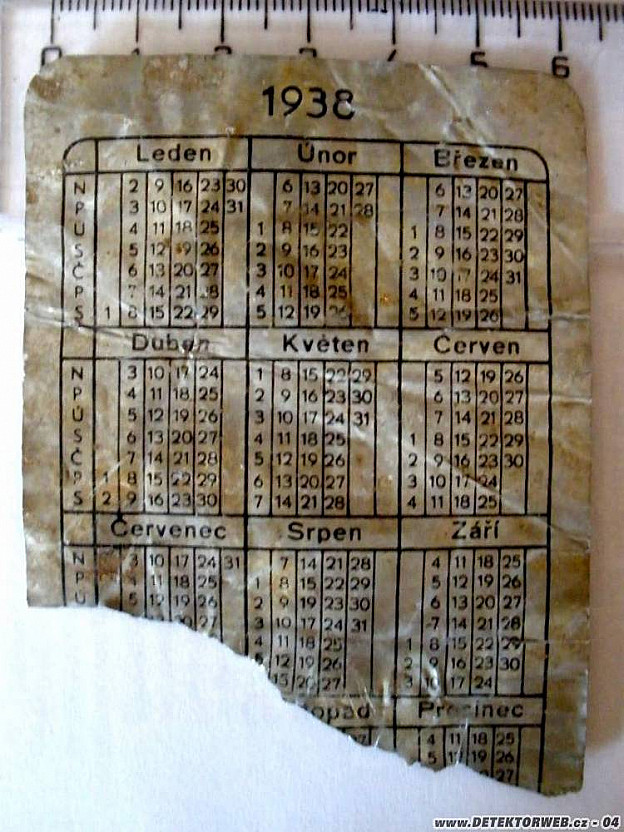 0 1 2 3 4 5 6
1938
Leden Únor Březen
N 2 9 16 23 30 6 13 20 27 6 13 20 27
P 3 10 17 24 31 7 14 21 28 7 14 21 28
Ú 4 11 18 25 1 8 15 22 1 8 15 22 29
S 5 12 19 26 2 9 16 23 2 9 16 23 30
Č 6 13 20 27 3 10 17 24 3 10 17 24 31
P 7 14 21 28 4 11 18 25 4 11 18 25
S 1 8 15 22 29 5 12 19 26 5 12 19 26
Duben Květen Červen
N 3 10 17 24 1 8 15 22 29 5 12 19 26
P 4 11 18 25 2 9 16 23 30 6 13 20 27
Ú 5 12 19 26 3 10 17 24 31 7 14 21 28
S 6 13 20 27 4 11 18 25 1 8 15 22 29
Č 7 14 21 28 5 12 19 26 2 9 16 23 30
P 1 8 15 22 29 6 13 20 27 3 10 17 24
S 2 9 16 23 30 7 14 21 28 4 11 18 25
Červenec Srpen Září
N 3 10 17 24 31 7 14 21 28 4 11 18 25
P 4 11 18 25 1 8 15 22 29 5 12 19 26
Ú 5 12 19 26 2 9 16 23 30 6 13 20 27
27 3 10 17 24 31 7 14 21 28
4 11 18 25 1 8 15 22 29
12 19 26 2 9 16 23 30
13 20 27 3 10 17 24
opad Prosinec
27 4 11 18 25
5 12 19 26
27
www.DETEKTORWEB.cz - 04